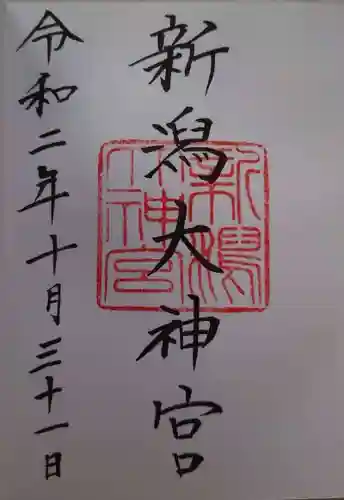 新潟大神宮
令和二年十月三十一日
新潟大神宮